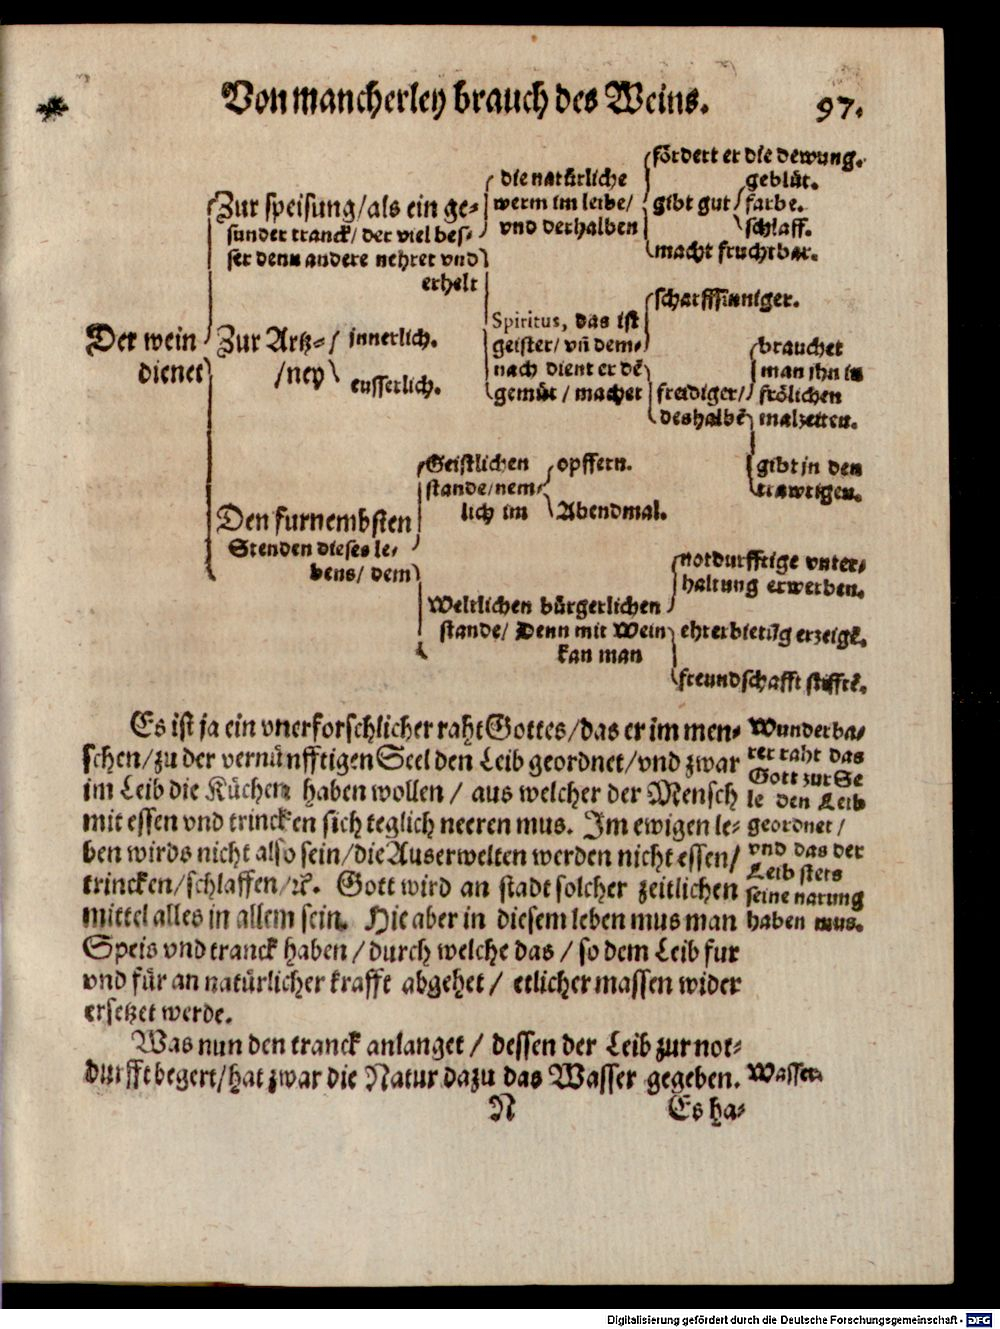 Von mancherley brauch des Weins. 97.
Der wein
dienet
Zur speisung/als ein ge-
sunder tranck/ der viel bes-
ser denn andere nehret vnd
erhelt
die natürliche
werm im leibe/
vnd derhalben
fördert er die dewung.
gibt gut
geblüt.
farbe.
schlaff.
macht fruchtbar.
Spiritus, das ist
geister/ vñ dem-
nach dient er dē
gemüt / machet
scharffsinniger.
freidiger/
deshalbē
brauchet
man ihn in
frölichen
malzeiten.
gibt jn den
trawrigen.
Zur Artz-
/ney
innerlich.
eusserlich.
Den furnembsten
Stenden dieses le-
bens/ dem
Geistlichen
stande/nem-
lich im
opffern.
Abendmal.
Weltlichen bürgerlichen
stande/ Denn mit Wein
kan man
notdurfftige vnter-
haltung erwerben.
ehrerbietũg erzeigē.
freundschafft stifftē.
Es ist ja ein vnerforschlicher raht Gottes/das er im men-
schen/zu der vernünfftigen Seel den Leib geordnet/vnd zwar
im Leib die Küchen haben wollen / aus welcher der Mensch
mit essen vnd trincken sich teglich neeren mus. Im ewigen le-
ben wirds nicht also sein/die Auserwelten werden nicht essen/
trincken/schlaffen/ꝛc. Gott wird an stadt solcher zeitlichen
mittel alles in allem sein. Hie aber in diesem leben mus man
Speis vnd tranck haben / durch welche das / so dem Leib fur
vnd für an natürlicher krafft abgehet / etlicher massen wider
ersetzet werde.
Wunderba-
rer raht das
Gott zur Se
le den Leib
geordnet /
vnd das der
Leib stets
seine narung
haben mus.
Was nun den tranck anlanget / dessen der Leib zur not-
durfft begert/hat zwar die Natur dazu das Wasser gegeben.
Wasser.
N
Es ha-
Digitalisierung gefördert durch die Deutsche Forschungsgemeinschaft - DFG